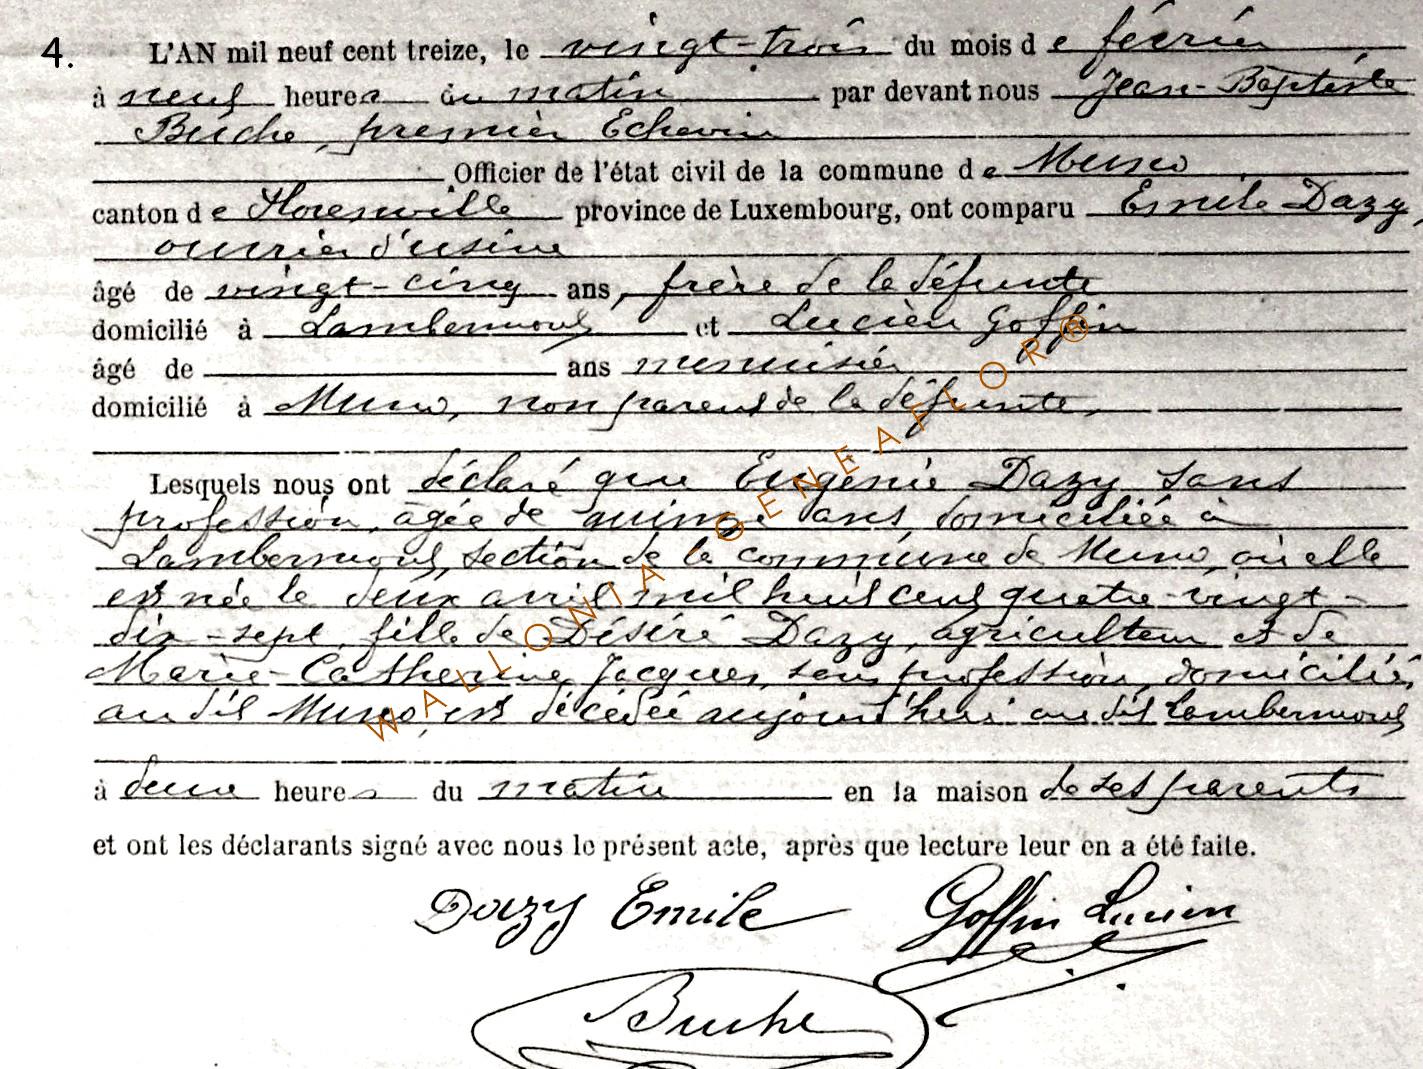 4. L'AN mil neuf cent treize, le vingt-trois du mois de février
à neuf heures du matin par devant nous Jean-Baptiste
Buche, premier Echevin
Officier de l'état civil de la commune de Muno
canton de Florenville province de Luxembourg, ont comparu Emile Dazy,
ouvrier d'usine
âgé de vingt-cinq ans, frère de la défunte
domicilié à Lambermont et Lucien Goffin
âgé de ans menuisier
domicilié à Muno, non parent de la défunte,
Lesquels nous ont déclaré que Eugénie Dazy sans
profession, agée de quinze ans, domiciliée à
Lambermont, section de la commune de Muno, où elle
est née le deux avril mil huit cent quatre-vingt-
dix-sept, fille de Désiré Dazy, agriculteur et de
Marie-Catherine Jacques, sans profession, domiciliés
au dit Muno, est décédée aujourd'hui au dit Lambermont
à deux heures du matin en la maison de ses parents
et ont les déclarants signé avec nous le présent acte, après que lecture leur en a été faite.
Dazy Emile Goffin Lucien
Buche
WALLONIA GENEAFLOR®